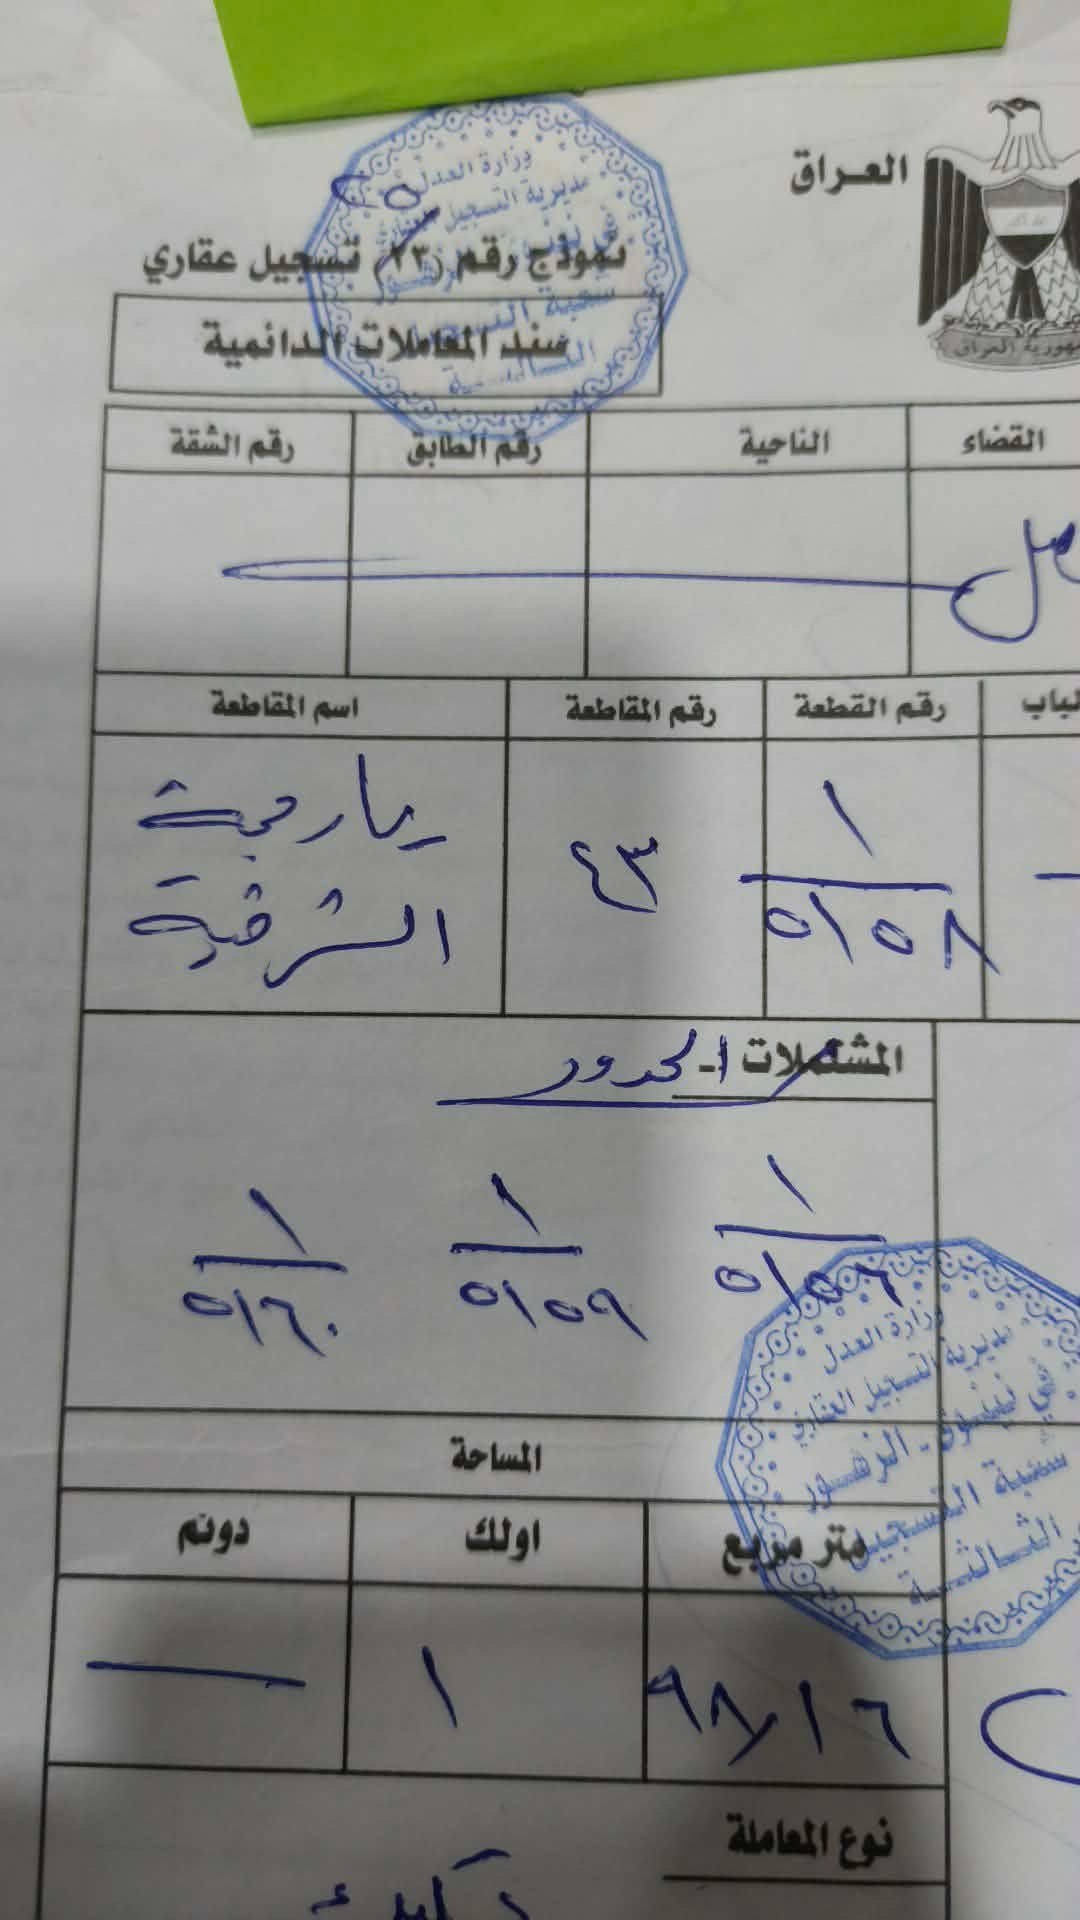 العراق
جمهورية العراق
وزارة العدل
مديرية التسجيل العقاري
نموذج رقم (٢٣) تسجيل عقاري
سند المعاملات الدائمية
القضاء الناحية رقم الطابق رقم الشقة
رقم القطعة رقم المقاطعة اسم المقاطعة
١
٥١٥٨
٤٣
يارمجة
الشرقية
المشتملات الحدود
١ ١ ١
٥١٥٦ ٥١٥٩ ٥١٦٠
وزارة العدل
مديرية التسجيل العقاري
في نينوى - الزهور
شعبة التسجيل
الثالثة
المساحة
متر مربع اولك دونم
٩٨,١٦ ١ —
نوع المعاملة